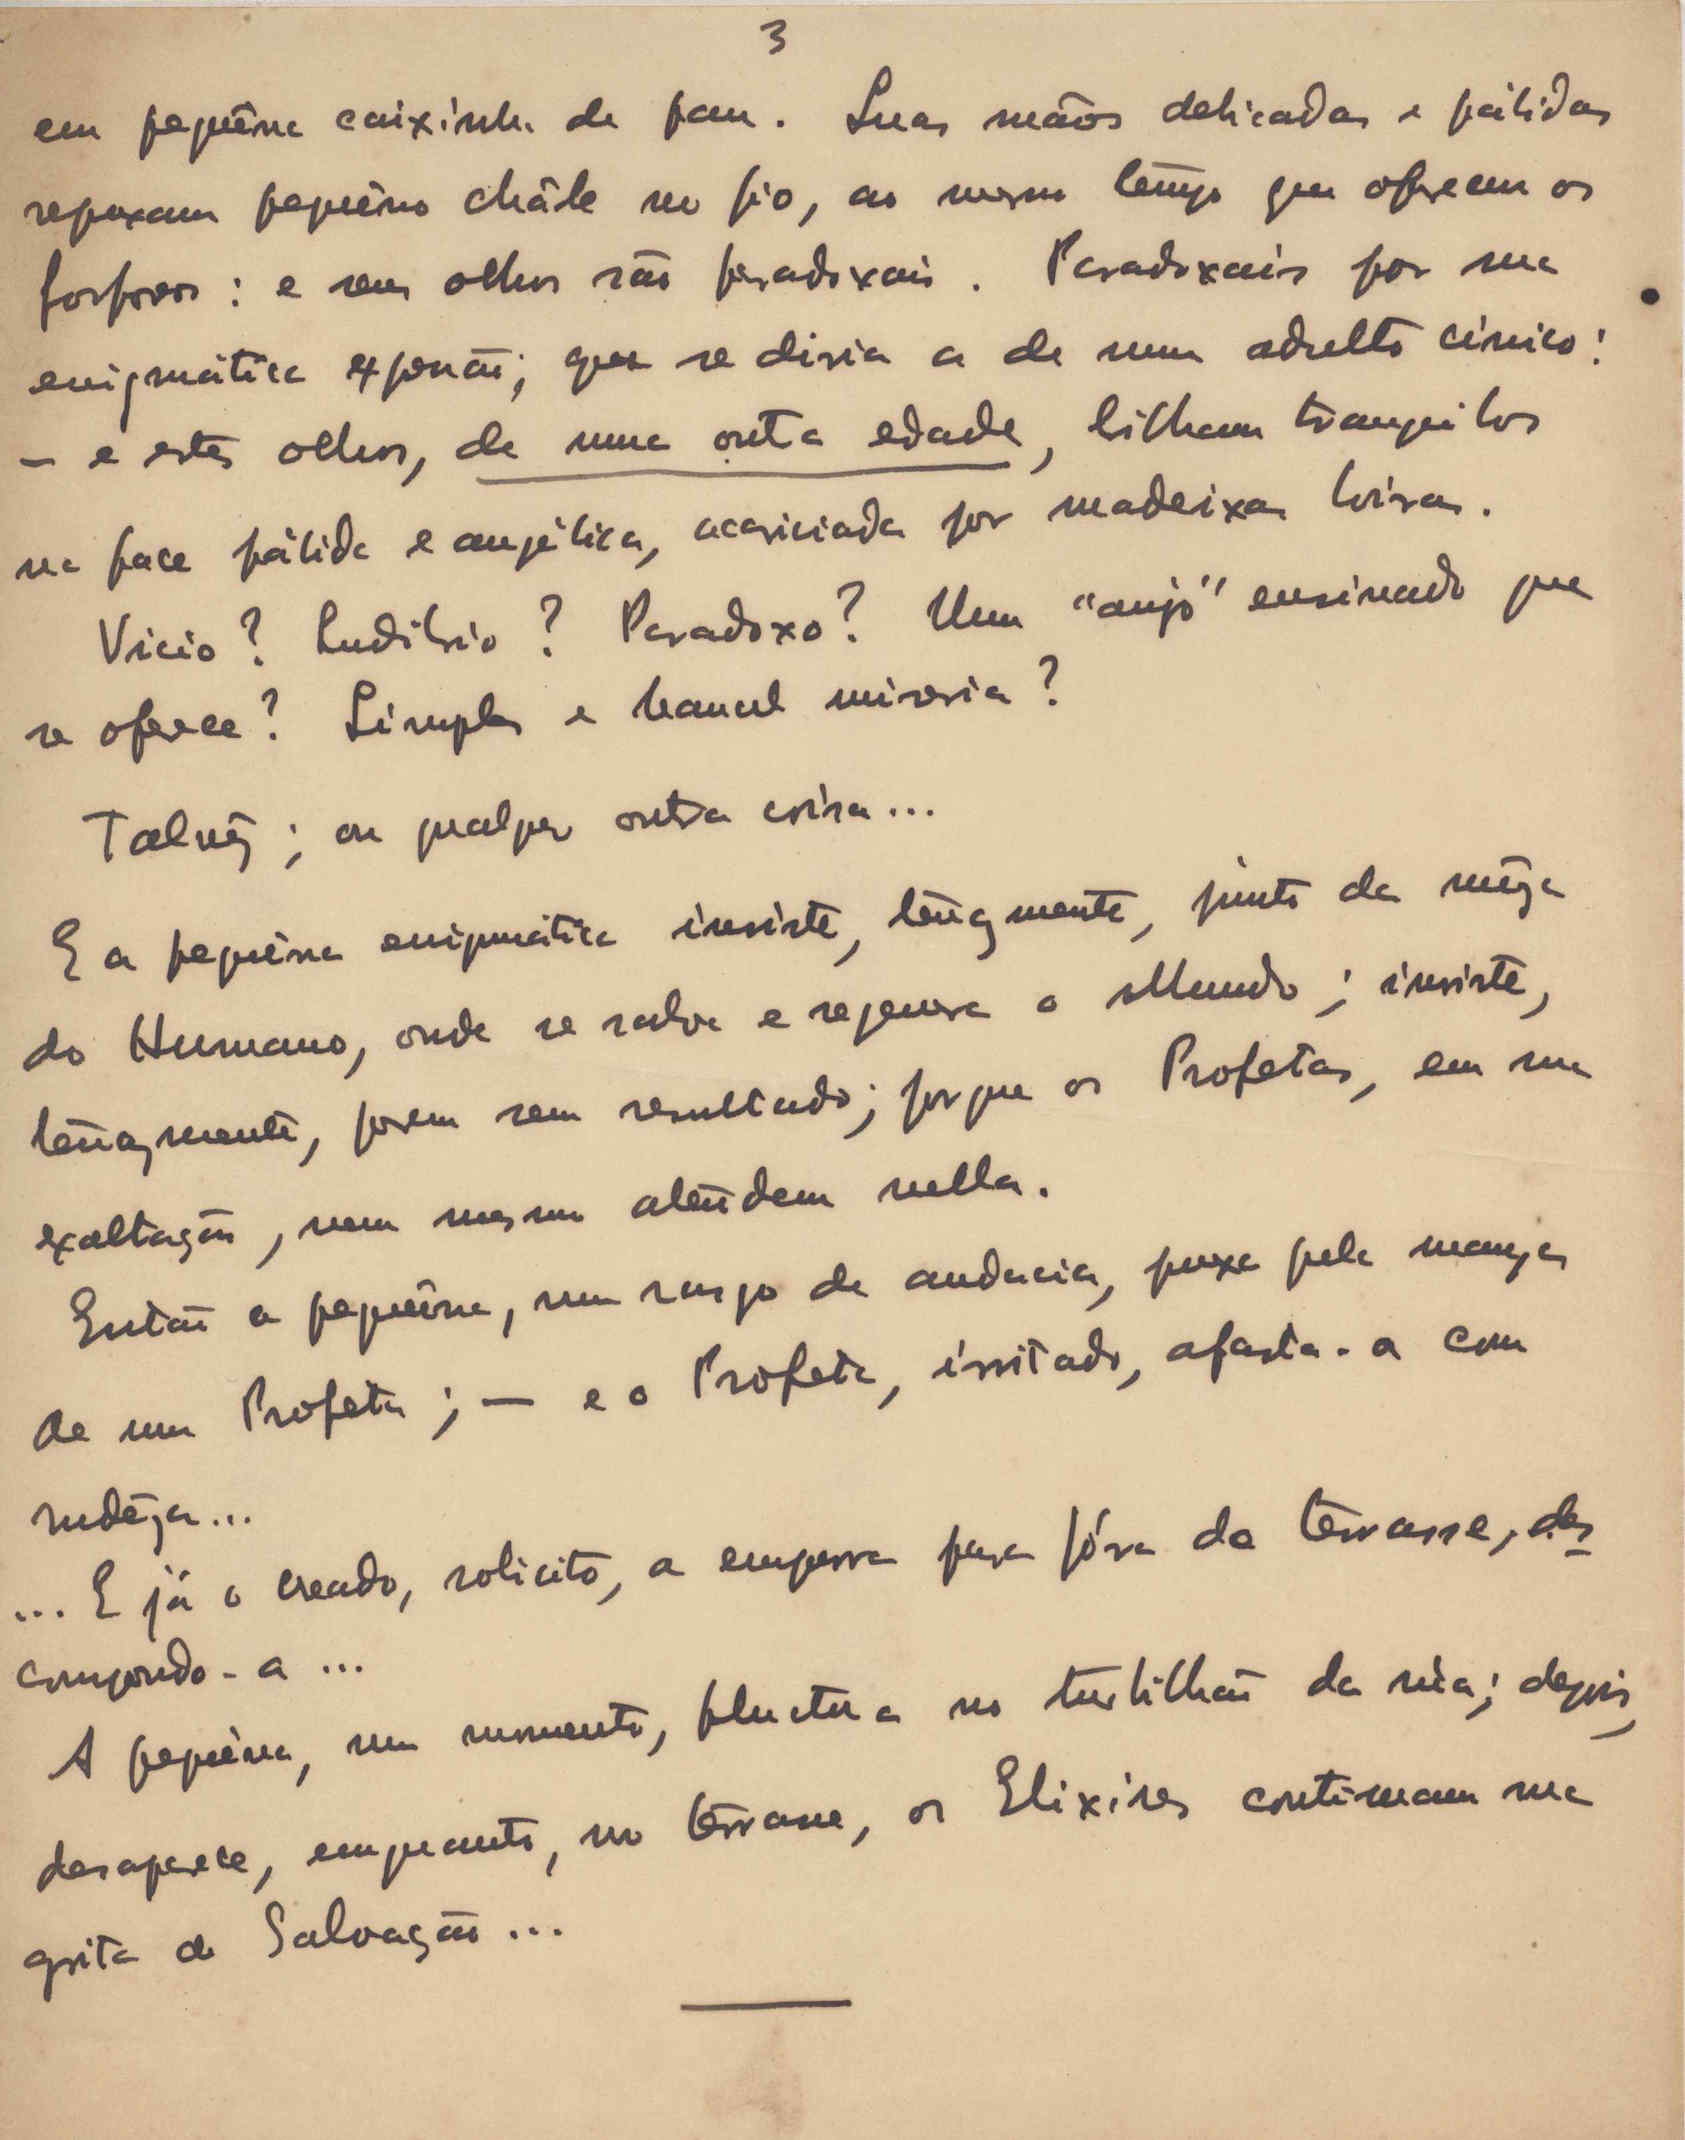 3
em pequêna caixinha de pau. Suas mãos delicadas e pálidas
repuxam pequêno chále no fio, ao mesmo tempo que oferecem os
fosforos: e seus olhos são paradoxais. Paradoxais por sua
enigmática expressão; que se diria a de num adulto cinico:
— e estes olhos, de uma outra edade, brilham tranquilos
na face pálida e angélica, acariciada por madeixas loiras.
Vicio? Ludibrio? Paradoxo? Um "anjo" ensinado que
se oferece? Simples e banal miseria?
Talvêz; ou qualquer outra coisa...
E a pequêna enigmática insiste, tenazmente, junto da mêza
do Humano, onde se salva e regenera o Mundo; insiste,
tenazmente, porem sem resultado; porque os Profetas, em sua
exaltação, nem mesmo atendem nella.
Então a pequêna, num rasgo de audacia, puxa pela manga
de um Profeta; — e o Profeta, irritado, afasta-a com
rudêza...
... E já o creado, solicito, a empurra para fóra da terrasse, des
compondo-a...
A pequêna, um momento, fluctua no turbilhão da rúa; depois,
desaparece, emquanto, no terrasse, os Elixires continuam na
grita da Salvação...